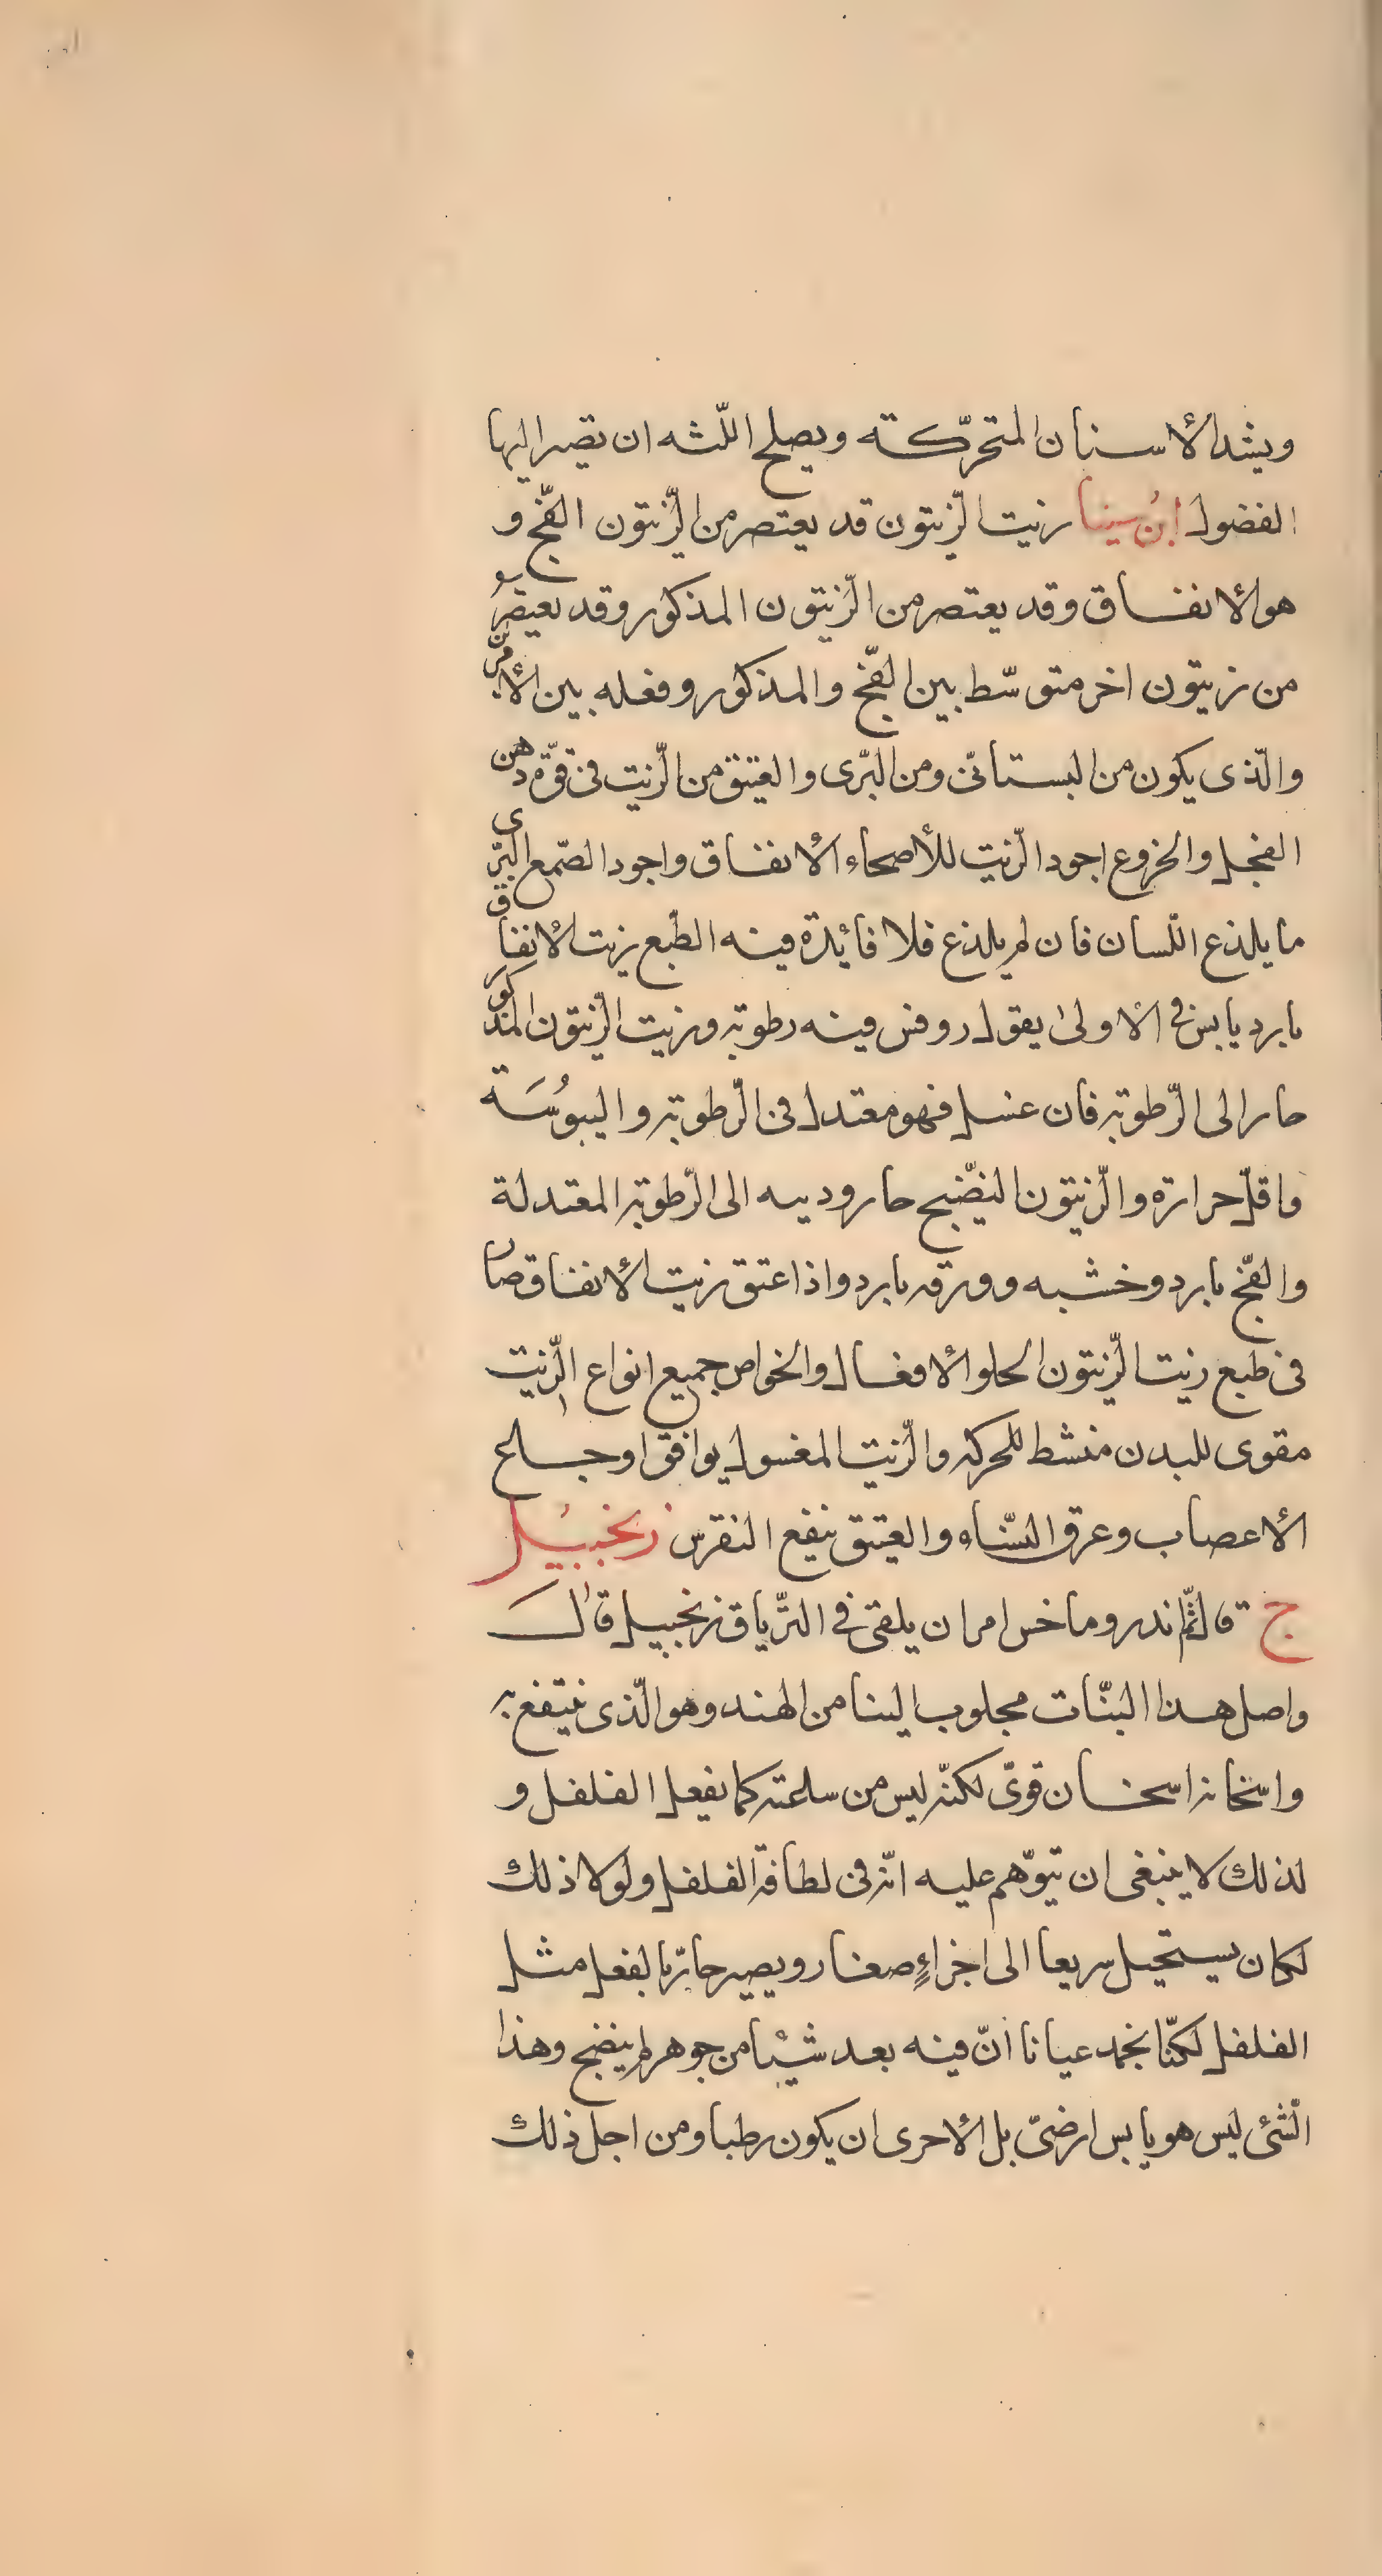 ويشد الأسنان المتحرّكته ويصلح اللّثه ان تصير اليها
الفضول ابن سينا زيت الزّيتون قد يعتصر من الزّيتون الفّج و
هو الأنفاق وقد يعتصر من الزّيتون المذكور وقد يعيصر
من زيتون اخر متوسّط بين الفّج والمذكور وفعله بين الأمرين
والّذى يكون من البستانىّ ومن البرّى والعتيق من الزّيت فى قوّة دهن
الفجل والخروع اجود الزّيت للأصحاء الأنفاق واجود الصّمع البرّى
ما يلذع اللّسان فان لم يلذع فلا فائدة فيه الطّبع زيت الأنفاق
بارد يابس فى الاولىٰ يقول روفس فيه رطوبة وزيت الزّيتون المذكور
حار الى الرّطوبة فان غسل فهو معتدل فى الرّطوبة واليبوُسَة
واقلّ حرارة والزّيتون النضّبج حار وديبه الى الرّطوبة المعتدلة
والفّج بارد وخشبه وورقه بارد واذا عتق زيت الأنفاق صار
فى طبع زيت الزّيتون الحلو الأفعال والخواص جميع انواع الزّيت
مقوى للبدن منشط للحركة والزّيت المغسول يوافق اوجاع
الأعصاب وعرق النّساء والعتيق ينفع النقرس زنجبيل
ج قال ثمّ اندروماخس امر ان يلقى فى التّرياق زنجبيل قال
واصل هذا النبّات مجلوب الينا من الهند وهو الّذى ينتفع به
واسخانه اسخان قوىّ لكنّه ليس من ساعته كما يفعل الفلفل و
لذلك لا ينبغى ان يتوّهم عليه انّه فى لطافة الفلفل ولولا ذلك
لكان يستحيل سريعا الى اجزاءٍ صغار ويصير حارّا بالفعل مثل
الفلفل لكنّا نجد عيانا انّ فيه بعد شيئا من جوهر لم ينضج وهذا
الّشئ ليس هو يابس ارضىّ بل الأحرى ان يكون رطبا ومن اجل ذلك